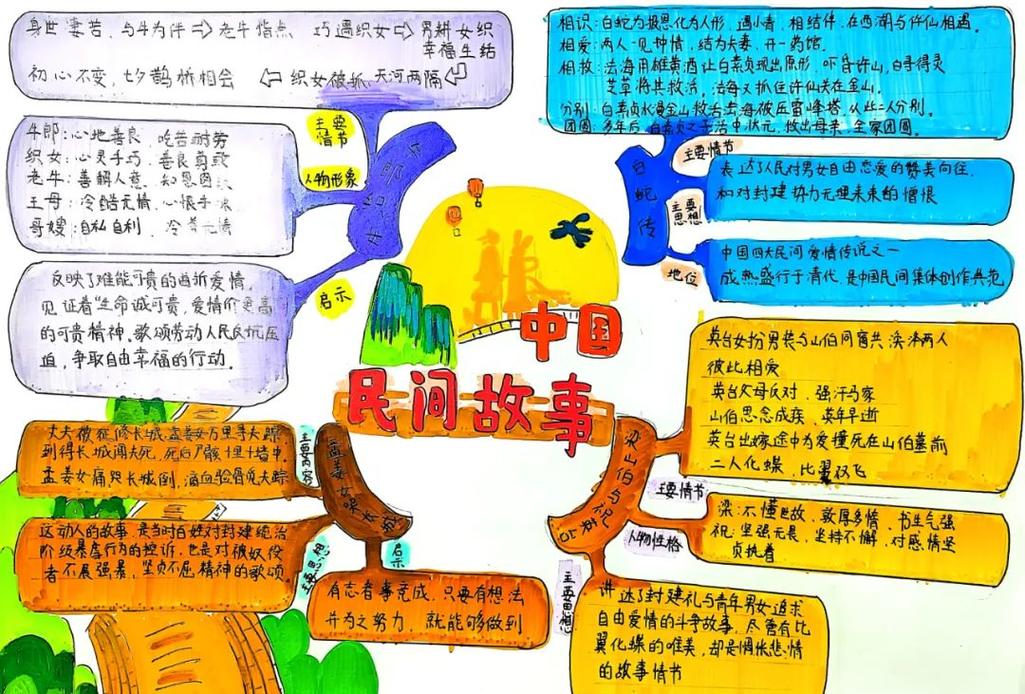 中国
民间故事
牛郎织女
主要情节
身世凄苦，与牛为伴⇒老牛指点 巧遇织女⇒男耕女织
幸福生结
初心不变，七夕鹊桥相会 ⇐ 织女被抓 天河两隔 ⇐
人物形象
牛郎:心地善良、吃苦耐劳
织女:心灵手巧、善良勇敢
老牛:善解人意、知恩图
王母:冷酷无情、心狠手
哥嫂:自私自利、冷 无情
启示
反映了难能可贵的 爱情，
见证着"生命诚可贵，爱情价更高
的可贵精神、歌颂劳动人民反抗压
迫，争取自由幸福的行动。
白蛇传
主要情节
相识:白蛇为报恩化为人形，遇小青，相结伴，在西湖与许仙相遇。
相爱:两人一见钟情，结为夫妻，开一药馆。
相救:法海用雄黄酒让白素贞现出原形，吓昏许 ，白 得灵
芝草将其救活，法海又抓住许仙关在金山。
分别:白素贞水漫金山救活 海被压雷峰塔，从此二人分别。
团圆:多年后，白素贞之子 中状元，救出母亲，全家团圆。
主要思想
表达了人民对男女自由恋爱的赞美向往，
和对封建势力无理 的憎恨
地位
中国四大民间爱情传说之一
成熟盛行于清代，是中国民间集体创作典范
孟姜女哭长城
主要内容
丈夫被征修长城，孟姜女万里寻夫踪
到得长城闻夫死，死后尸骸埋土墙中，
孟姜女痛哭长城倒，滴血验骨见夫踪
主要思想
这动人的故事，是当时百姓对封建统治
阶级暴虐行为的控诉，也是对被奴役
者不屈强暴，坚贞不屈精神的歌颂
启示
有志者事竟成，只要有想法
并为之努力，就能够做到
梁山伯与祝英台
主要情节
英台女扮男装与山伯同窗共读 两人
彼此相爱
英台父母反对，强 马家
山伯思念成疾，英年早逝
英台出嫁途中为爱撞死在山伯墓前
二人化蝶，比翼双飞
人物性格
梁:不懂世故、敦厚多情、书生气强
祝:坚强无畏，坚持不懈，对感情坚
贞执着
主要思想
讲述了封建礼与青年男女追求
自由爱情的斗争故事，尽管有比
翼化蝶的唯美，却是惆怅悲情
的故事情节